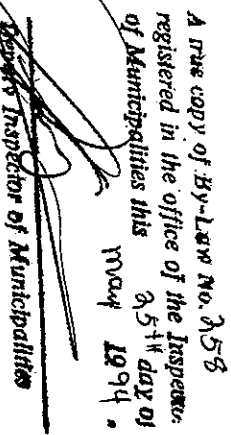 A true copy of By-Law No. 258
registered in the office of the Inspector
of Municipalities this 25th day of
May 1994.
Deputy Inspector of Municipalities